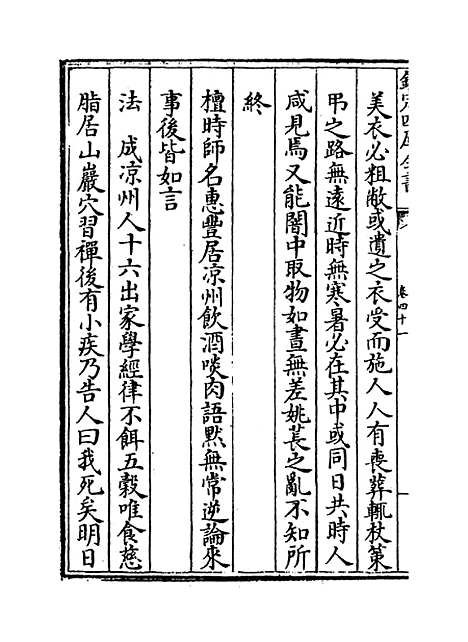 欽定四庫全書
卷四十一
美衣必粗敝或遺之衣受而施人人有喪葬輒杖策
弔之路無遠近時無寒暑必在其中或同日共時人
咸見焉又能闇中取物如晝無差姚萇之亂不知所
終
檀時師名惠豐居凉州飲酒啖肉語默無常逆論來
事後皆如言
法 成凉州人十六出家學經律不餌五穀唯食慈
脂居山巖穴習禪後有小疾乃告人曰我死矣明日